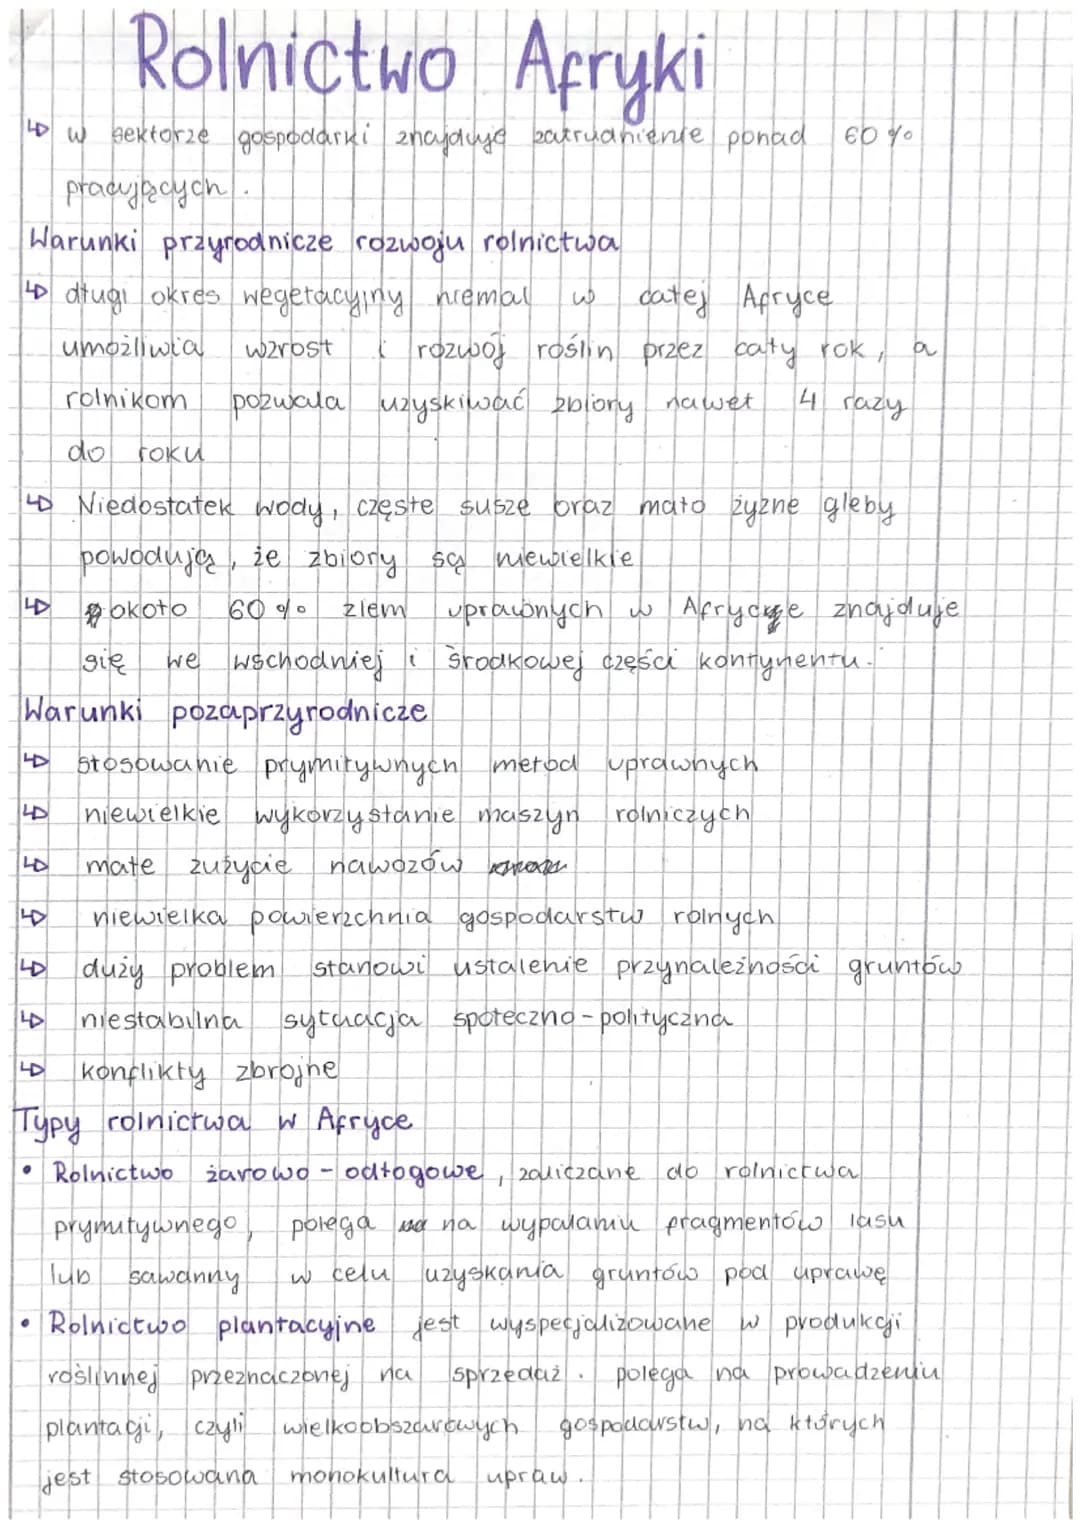 Rolnictwo Afryki
↳ w sektorze gospodarki znajduję zatrudnienie ponad 60%
pracujących.
Warunki przyrodnicze rozwoju rolnictwa
↳ długi okres wegetacyjny niemal w całej Afryce
umożliwia wzrost i rozwój roślin przez cały rok, a
rolnikom pozwala uzyskiwać zbiory nawet 4 razy
do roku
↳ Niedostatek wody, częste susze oraz mało żyzne gleby
powodują, że zbiory są niewielkie
↳ około 60% ziem uprawnych w Afryce znajduje
się we wschodniej i środkowej części kontynentu.
Warunki pozaprzyrodnicze
↳ stosowanie prymitywnych metod uprawnych
↳ niewielkie wykorzystanie maszyn rolniczych
↳ małe zużycie nawozów
↳ niewielka powierzchnia gospodarstw rolnych
↳ duży problem stanowi ustalenie przynależności gruntów
↳ niestabilna sytuacja społeczno-polityczna
↳ konflikty zbrojne
Typy rolnictwa w Afryce
• Rolnictwo żarowo-odłogowe, zaliczane do rolnictwa
prymitywnego, polega na wypalaniu fragmentów lasu
lub sawanny w celu uzyskania gruntów pod uprawę
• Rolnictwo plantacyjne jest wyspecjalizowane w produkcji
roślinnej przeznaczonej na sprzedaż. polega na prowadzeniu
plantacji, czyli wielkoobszarowych gospodarstw, na których
jest stosowana monokultura upraw.